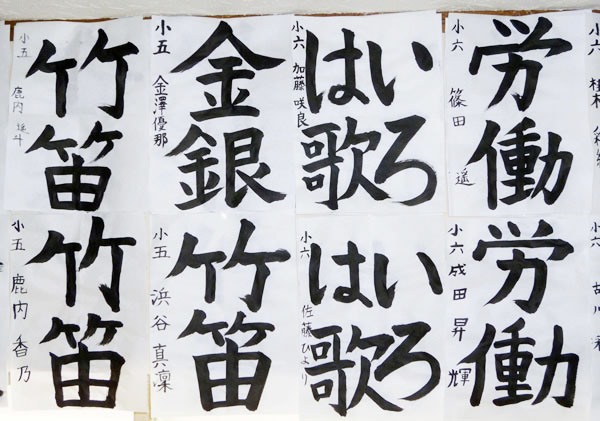 労働
小六 篠田 遥
いろは歌
小六 加藤 咲良
金銀
小五 金澤優那
竹笛
小五 鹿内
労働
小六 成田 昇輝
いろは歌
小六 佐藤ひより
竹笛
小五 浜谷 真凜
竹笛
小五 鹿内 香乃